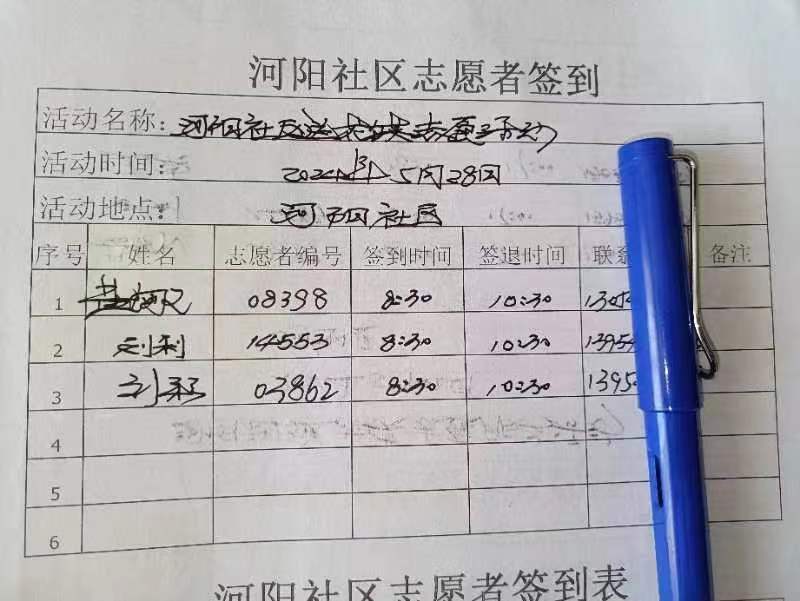 河阳社区志愿者签到
活动名称：河阳社区志愿活动
活动时间：2024年5月28日
活动地点：河阳社区
序号 姓名 志愿者编号 签到时间 签退时间 联系 备注
1 08398 8:30 10:30 130
2 刘利 14553 8:30 10:30 13954
3 刘 03862 8:30 10:30 1395
4
5
6
河阳社区志愿者签到表